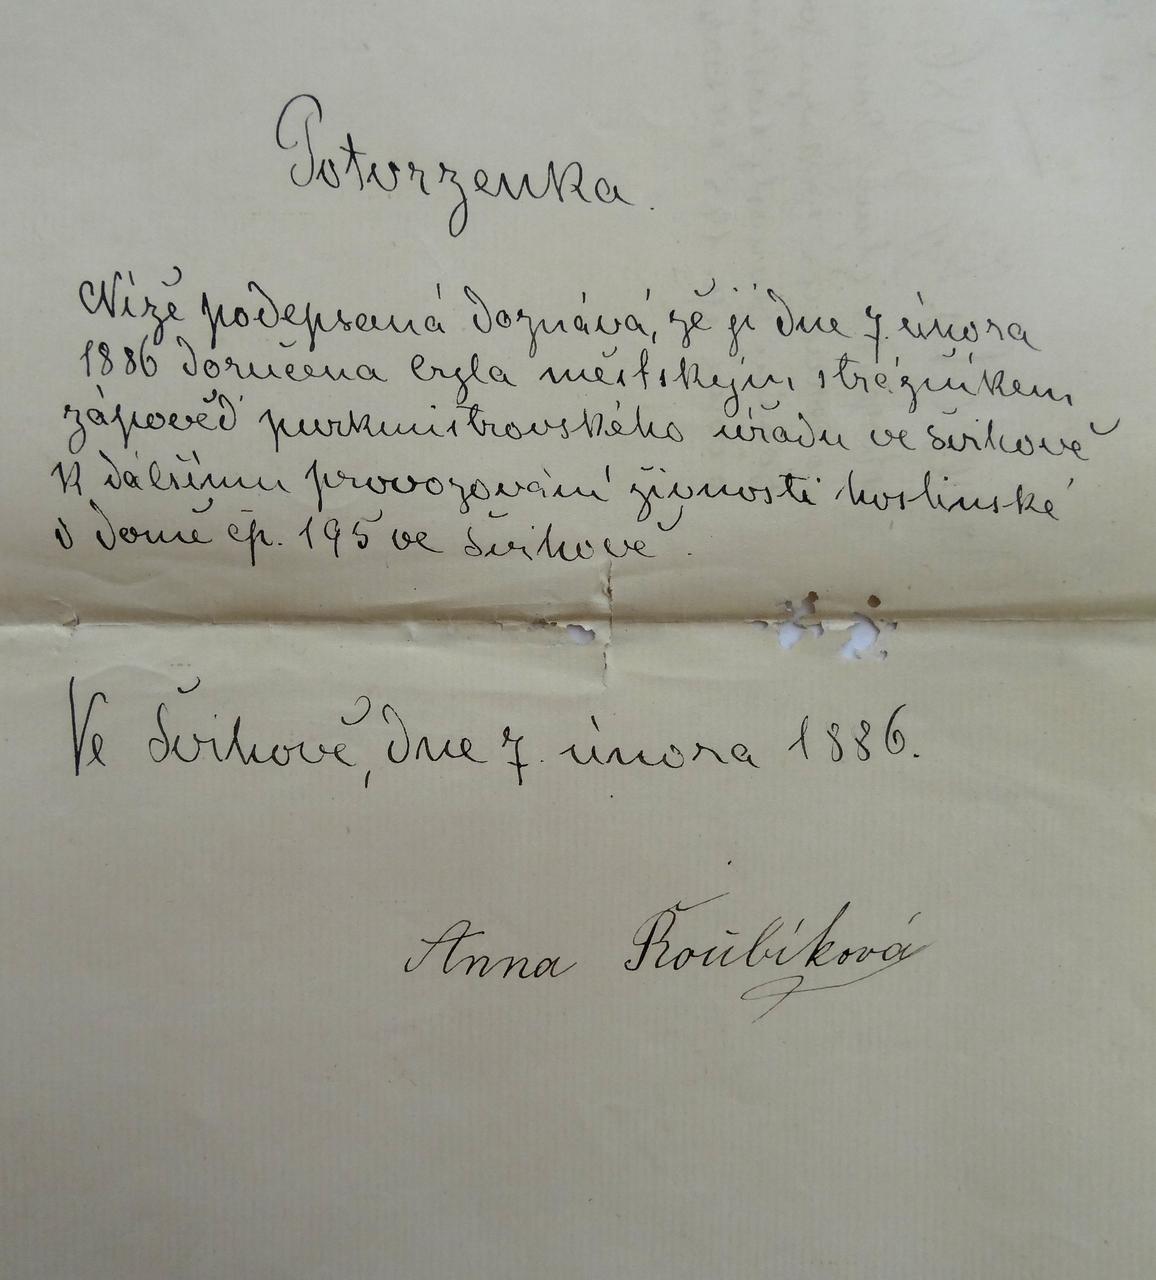 Potvrzenka.
Níže podepsaná doznává, že jí dne 7. února
1886 doručena byla městským strážníkem
zápověď purkmistrovského úřadu ve Švihově
k dalšímu provozování živnosti hostinské
v domě čp. 195 ve Švihově.
Ve Švihově, dne 7. února 1886.
Anna Roubíková